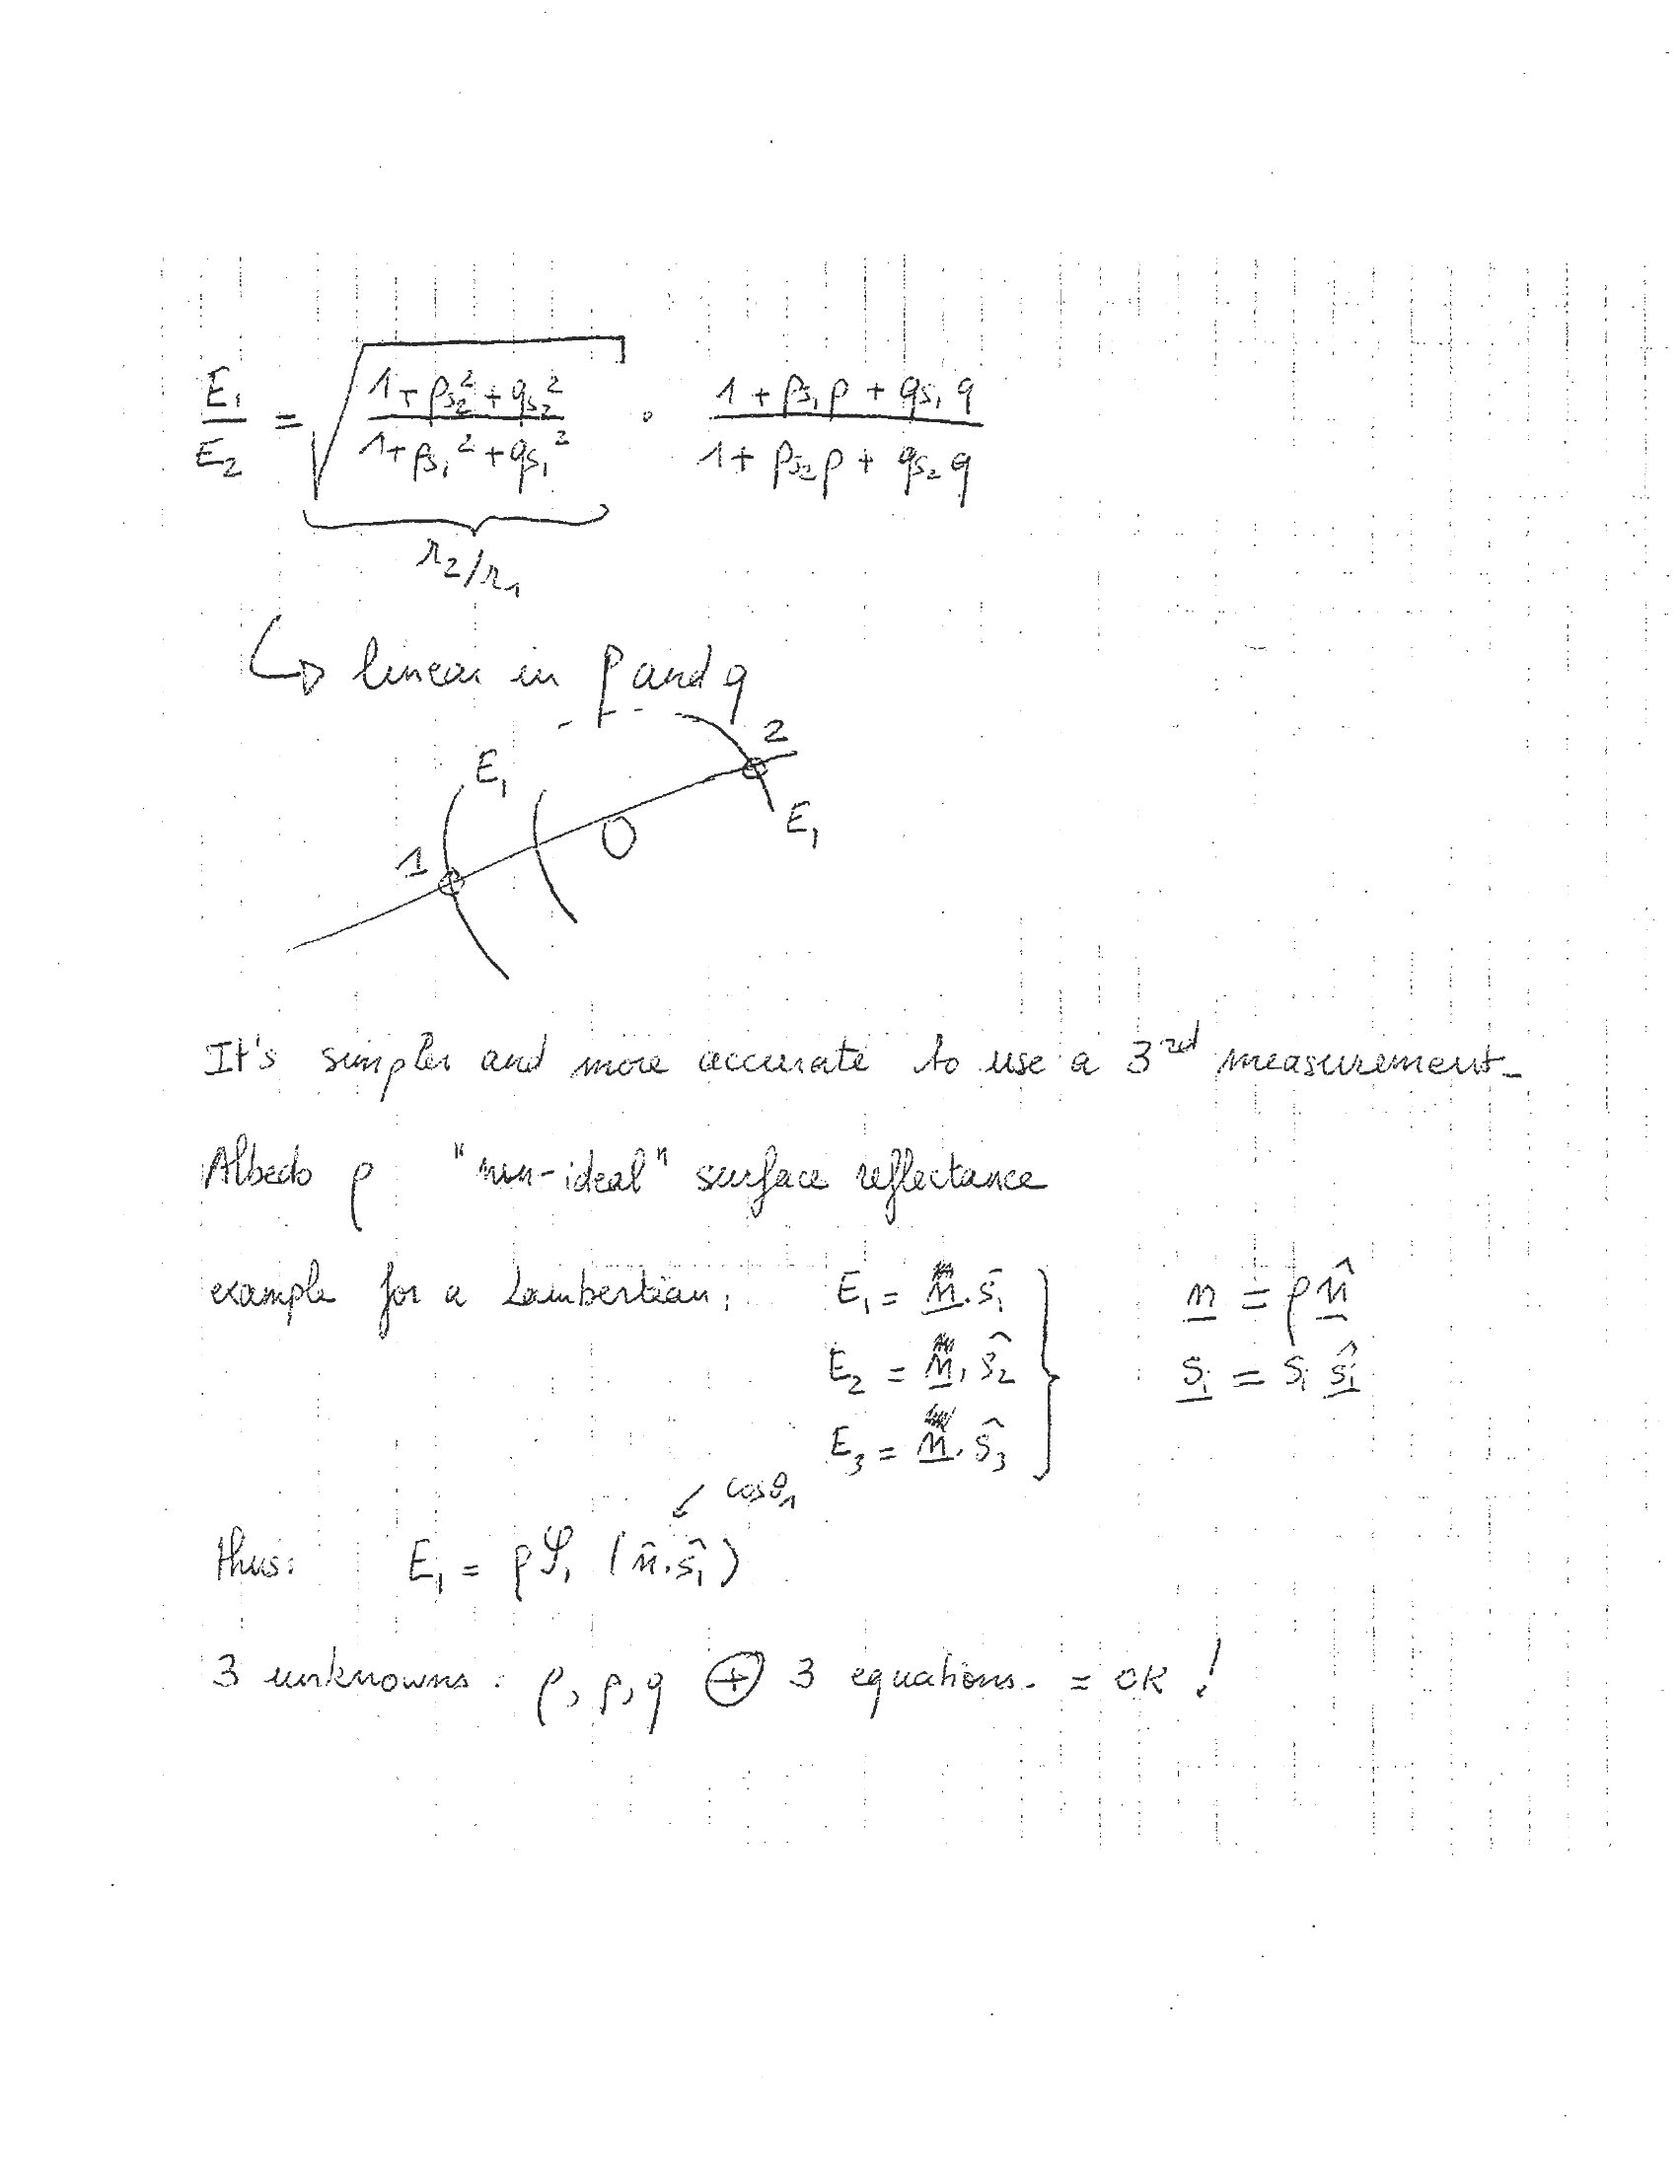 E₁/E₂ = √((1+p_s₂²+q_s₂²)/(1+p_s₁²+q_s₁²)) · (1+p_s₁p+q_s₁q)/(1+p_s₂p+q_s₂q)
r₂/r₁
↳ linear in p and q
2
E₁
E₁
0
1
It's simpler and more accurate to use a 3rd measurement.
Albedo ρ "non-ideal" surface reflectance
example for a Lambertian: E₁ = n̲.ŝ₁ n̲ = ρ n̲̂
E₂ = n̲.ŝ₂ s̲ᵢ = sᵢ ŝ̲ᵢ
E₃ = n̲.ŝ₃
cosθ₁
thus: E₁ = ρ𝒮₁ (n̂.ŝ₁)
3 unknowns: ρ, p, q ⊕ 3 equations. = OK !